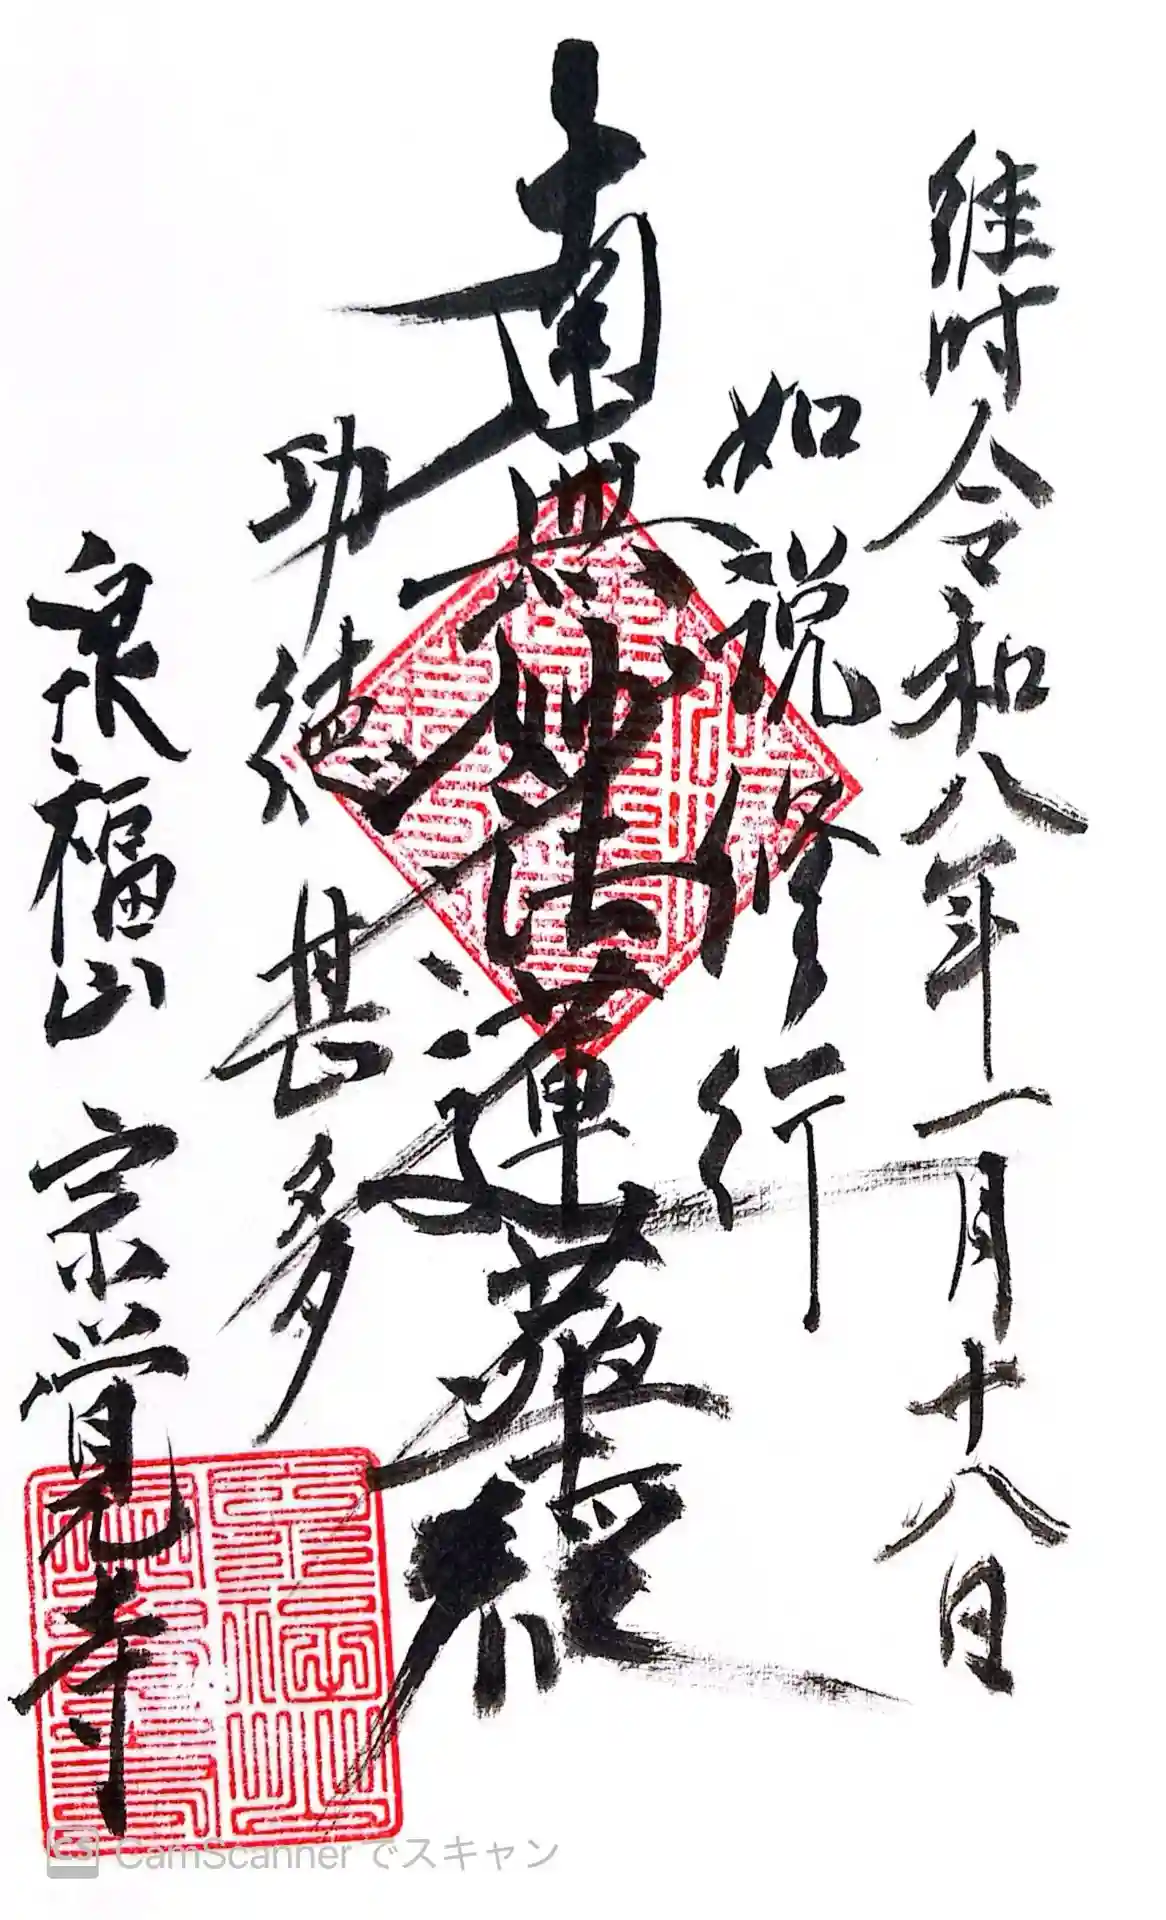 維時令和八年一月十八日
如説修行
南無妙法蓮華経
功徳甚多
泉福山 宗覚寺
CS CamScannerでスキャン